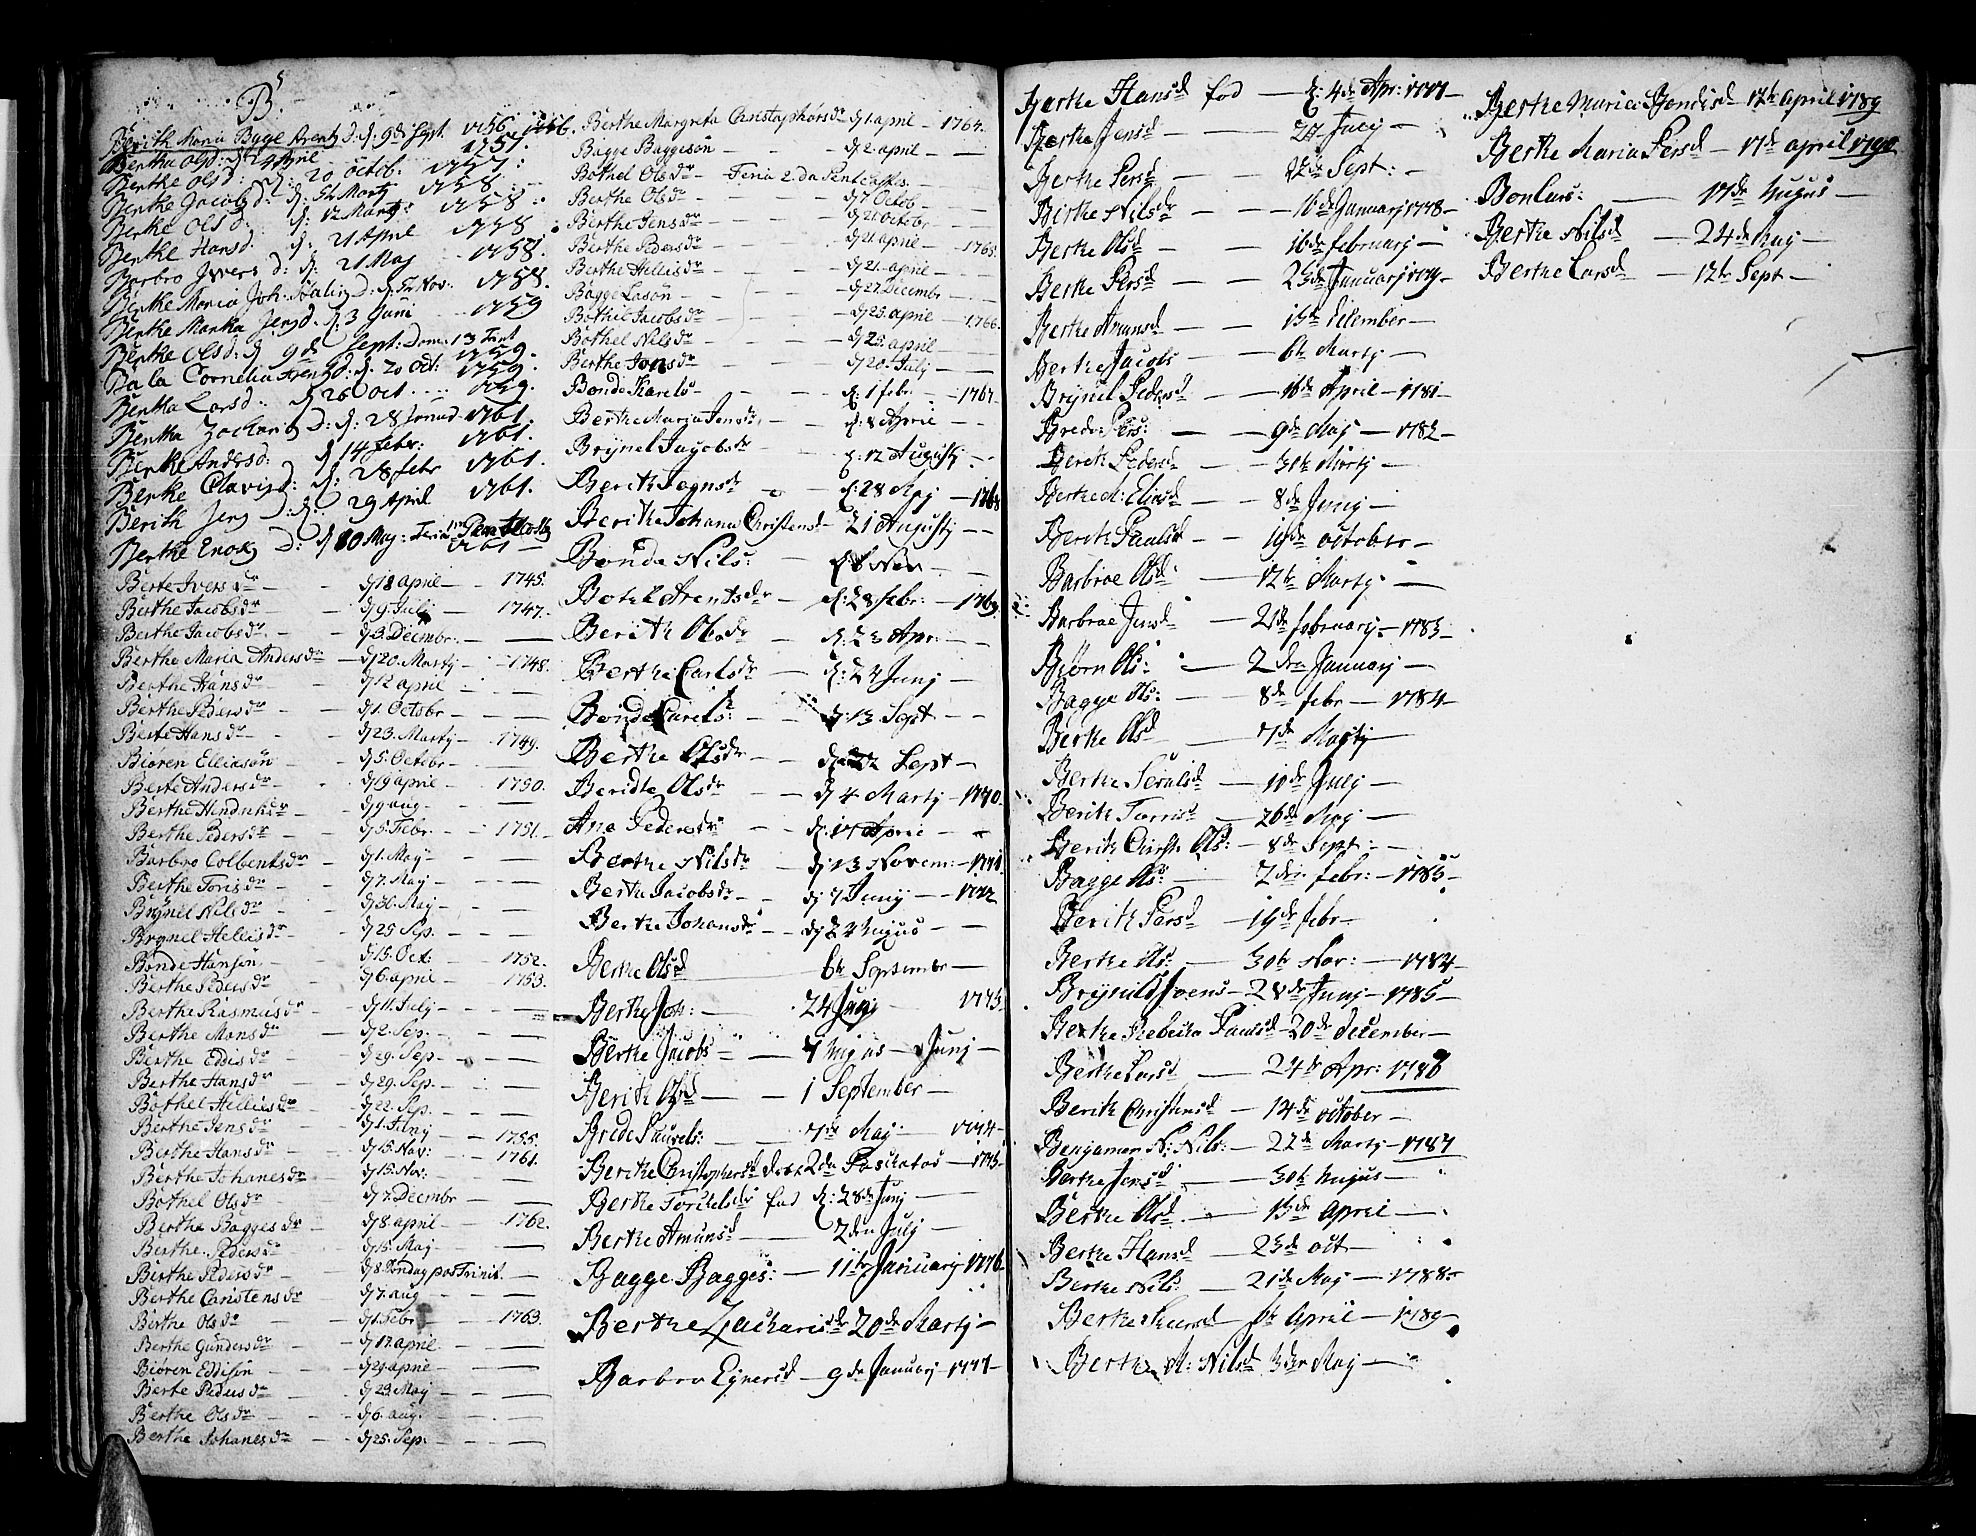 B.
Berith Maria Bygge Arentz d. d: 9de Sept. 1756
Bertha Olsd: d: 24 April 1757.
Berthe Olsd: d: 20 Octob. 1757:
Berthe Jacobsd: d: Marty 1758
Berthe Olsd: d: 12 Marty 1758
Berthe Hansd. d: 21 April 1758
Barbro Ivers d: d: 21 Maj 1758.
Berthe Maria Joh: d: d: Nov: 1758.
Berthe Martha Jensd. d: 3 Juni 1759
Berthe Olsd: d 9de Sept: Dom: 13 Trint 1759.
Cornelia Arentz d: d: 20 Oct: 1759.
Bertha Larsd: d 26 Oct 1759.
Bertha Zachari d: d: 28 1761.
Berthe Andersd: d 14 febr: 1761.
Berthe Olavisd: d: 28 febr 1761.
Berith Jens d: d: 29 April 1761.
Berthe Enoks d: d 10 Maj: Feria Pentecost 1761
Berte Ivers dr — d 18 april — 1745.
Berthe Jacobs dr — d 9. Julj — 1747.
Berthe Jacobs dr. — d 3. Decmbr. —
Berthe Maria Anders dr — d 20. Martj — 1748.
Berthe Hans dr — d 12 april —
Berthe Peders dr — d 1. Octobr —
Berte Hans dr — d 23. Martj — 1749.
Biøren Elliasøn — d 5. Octobr —
Berte Anders dr — d 19 april — 1750.
Berthe Hendrichs dr — d 9 aug —
Berthe Peders dr — d 5. Febr. — 1751.
Barbro Colbents dr — d 1. May —
Berthe Toris dr — d 7. May —
Brÿnel Nils dr — d 31. May —
Brynel Hellis dr — d 25 Sep. —
Bonde Hansøn — d 15. Oct: — 1752.
Berthe Peders dr — d 6. april — 1753.
Berthe Rasmus dr — d 11. Julj —
Berthe Mons dr — d 2. Sep. —
Berthe Eddis dr — d 29. Sep —
Berthe Hans dr — d 29. Sep. —
Bothel Hellies dr — d 22. Sep. —
Berthe Jens dr — d 1. — 1755.
Berthe Hans dr — d 15. Nov: — 1761.
Berthe Johanes dr — d 15. Nov: —
Bothel Ols dr — d 7. Decmbr —
Berthe Bagges dr — d 8 april — 1762.
Berthe Peders dr — d 15. Maj —
Berthe Peders dr — d 8. Søndag pos Trinit. —
Berthe Christens dr — d 7. aug —
Berthe Ols dr — d 1. Febr — 1763.
Berthe Gunders dr — d 17. april —
Biøren Eddisøn — d 24. april —
Berte Peders dr — d 29. May —
Berthe Ols dr — d 6. aug. —
Berthe Johanes dr — d 25. Sep. —
Berthe Margreta Christophørs dr d 1 april — 1764.
Bagge Baggesøn — d 2. april —
Bothel Ols dr — Feria 2.da Pentecostes. —
Berthe Ols dr — d 7 Octob —
Berthe Jens dr — d 21 Octobr —
Berthe Peders dr — d 21 april — 1765.
Berthe Hellis dr — d 21. april —
Bagge Lasøn — d 27 Decembr —
Bothel Jacobs dr — d 25. april — 1766.
Bothel Nils dr — d 25. april —
Berthe Jons dr — d 20. Julj —
Bonde Karels — d: 1 febr — 1767.
Berthe Maria Jens dr — d: 8 Aprie —
Brÿnel Jacobs dr — d: 12 Augusty —
Berith Mogns dr — d: 28 Maj — 1768
Berithe Johana Christens d — 21 Augusty —
Bonde Nils: — Nov —
Botele Arents dr — d: 28 febr: — 1769.
Berith Ols dr — d: 23 Apr: —
Berthe Carls dr — d: 24 Junj —
Bonde Carels: — d: 13 Sept —
Berthe Ols dr — Sept —
Beridte Ols dr — d: 4 Marty — 1770.
Ane Peders dr — d: 17 Aprie —
Berthe Nils dr — d: 13 Novem: — 1771.
Berthe Jacobs dr — d: 7 Junÿ — 1772
Berthe Johans dr — Augus —
Berthe Olsd — 6te Septembr —
Berthe Joh: — 24 Junj 1773.
Berthe Jacobs — 4 Augus — Junj —
Berith Olsd — 1 September —
Brede Pauvels: — 7de Maj — 1774 —
Berithe Christophersd 2da Paschatos — 1775
Berthe Torkels dr fød d: 28de Junj —
Berthe Amunsd — 2den Julj —
Bagge Bagges: — 11te Januarj 1776.
Berthe Zacharisd 20de Martj —
Barbro Ejnersd — 9de Januarj 1777 —
Berthe Hansd fød — d: 4de Apr: 1777 —
Berthe Jensd — 27 Julj —
Berthe Persd — 22de Sept: —
Birthe Nilsdr — 16de Januarj 1778 —
Berthe Olsd — 16de februarj —
Berthe Persd — 23de Januarj 1779 —
Berthe Amunsd — 15de December —
Berthe Jacobs — 6te Martj —
Brÿnel Pedersd — 16de April — 1781 —
Brede Pers: — 9de Maj — 1782 —
Berith Pedersd — 30te Martj —
Berthe M: Eliasd — 8de Junij —
Berith Paulsd — 19de October —
Barbroe Olsd: — 12te Martj —
Barbroe Jensd — 21de februarj — 1783 —
Biørn Ols: — 2den Januarj —
Bagge Ols: — 8de febr — 1784 —
Berthe Olsd — 7de Martj —
Berthe — 10de Julj —
Berith Torrisd — 26de Maj —
Berith Christ: Ols: — 8de Sept: —
Bagge Ols: — 2den febr: — 1785 —
Berith Larsd — 19de febr —
Berthe Ols: — 30te Nov: — 1784 —
Brÿnild Joens — 28de Junj — 1785 —
Berthe Rebecka Paulsd — 20de December —
Berthe Larsd — 24de Apr: 1786
Berith Christensd — 14de october —
Benjamen N: Nils: — 22de Martj — 1787
Berthe Jensd — 30te Augus —
Berthe Olsd — 13de April —
Berthe Hansd — 23de oct —
Berthe Nils: — 21de Maj — 1788 —
Berthe — 1te April — 1789 —
Berthe A: Nilsd 3den Maj —
Berthe Maria Bondesd 12te April 1789
Berthe Maria Persd — 17de april 1790
Bon Lars: — 17de Augus —
Berthe Nilsd — 24de Maj —
Berthe Larsd — 12te Sept —